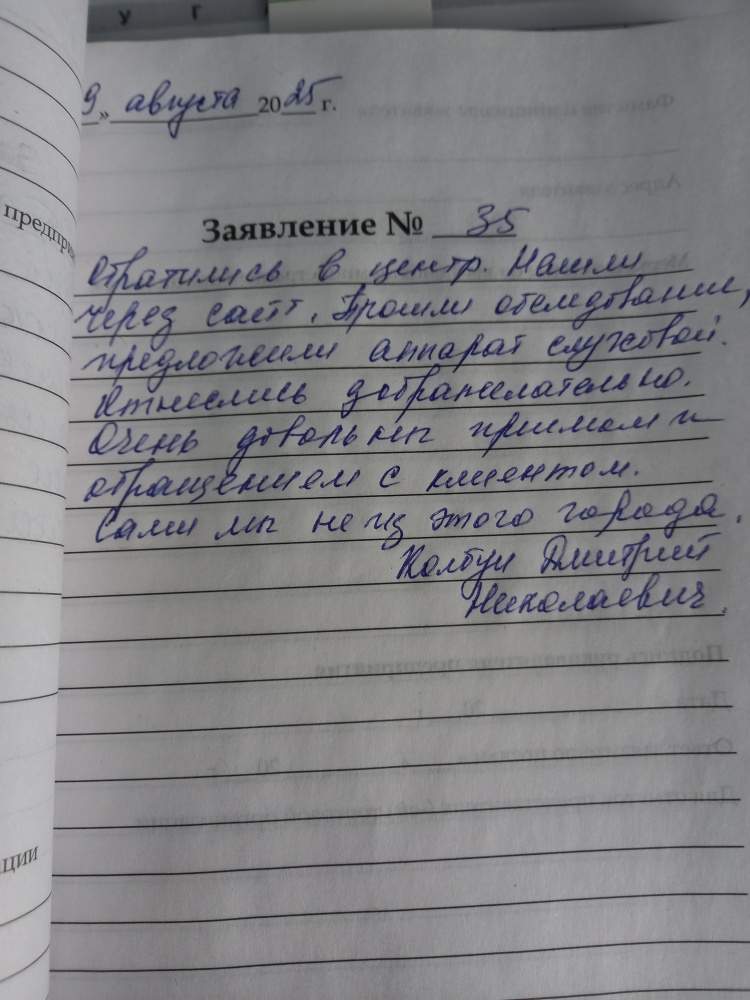 У Г
9 » августа 2025 г.
предпри
Заявление № 35
Обратились в центр. Нашли
через сайт. Прошли обследование,
предложили аппарат слуховой.
Отнеслись доброжелательно.
Очень довольны приемом и
обращением с клиентом.
Сами мы не из этого города.
Колбун Дмитрий
Николаевич.
ции